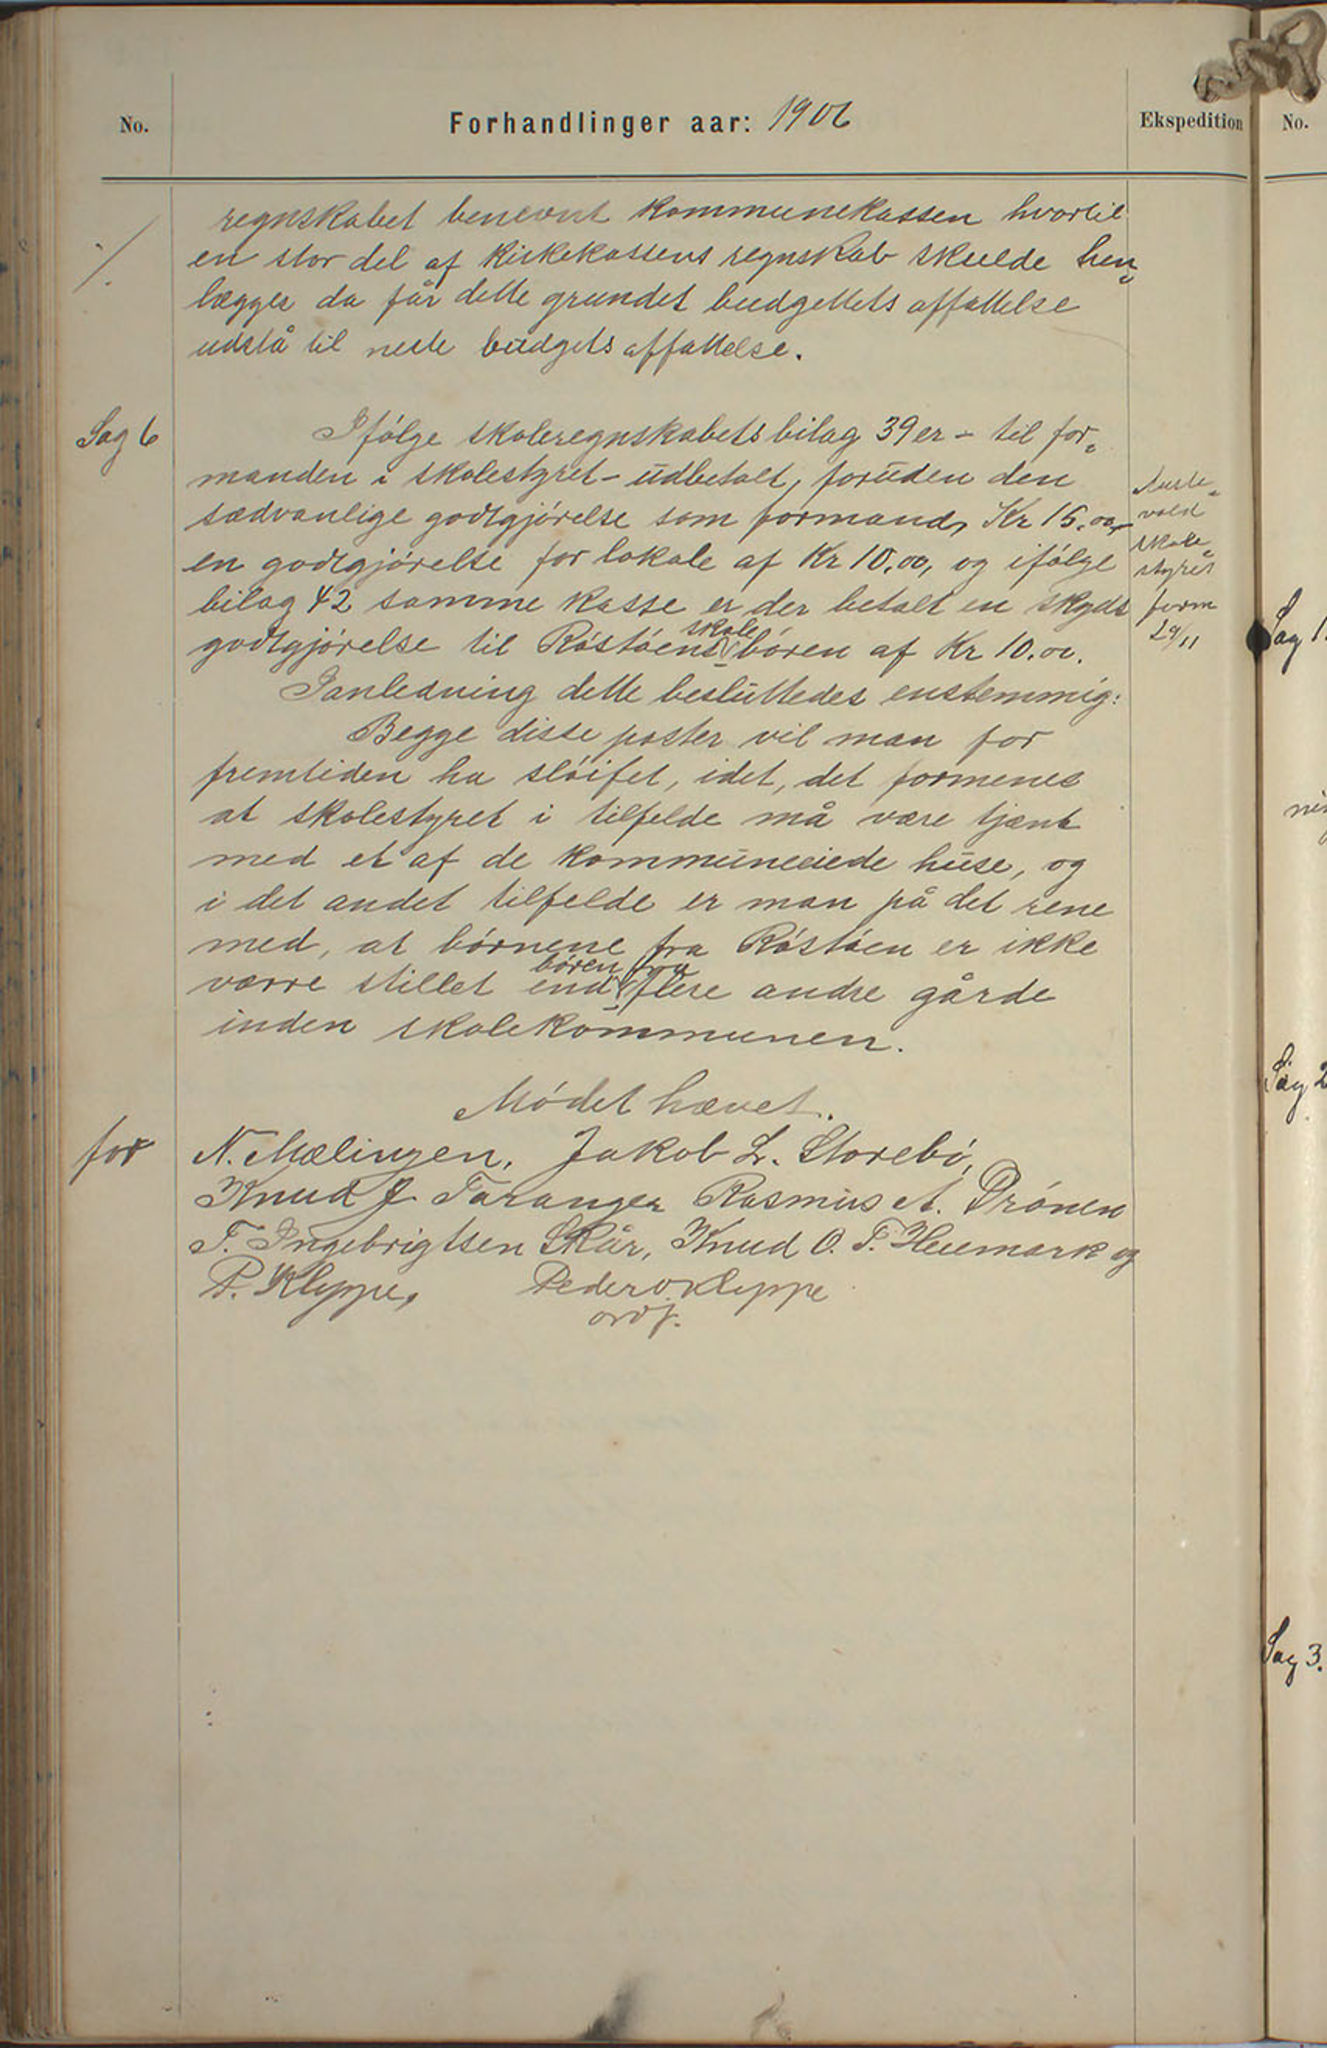 No.
Forhandlinger aar: 1906
Ekspedition
No.
regnskabet benevnt kommunekassen hvortil
en stor del af kirkekassens regnskab skulde hen„
lægges da får dette grundet budgettets affattelse
udstå til neste budgets affattelse.
Sag 6
Ifölge skoleregnskabets bilag 39 er - til for„
manden i skolestyret - udbetalt, foruden den
sædvanlige godtgjörelse som formand, Kr 15.00,
en godtgjörelse for lokale af Kr 10.00, og ifölge
bilag 42 samme kasse er der betalt en skyds
godtgjörelse til Röstöens skole bören af Kr 10.00.
Auste„
vold
skole„
styres
form
29/11
Ianledning dette besluttedes enstemmig:
Begge disse poster vil man for
fremtiden ha slöifet, idet, det formenes
at skolestyret i tilfelde må være tjent
med et af de kommuneeiede huse, og
i det andet tilfelde er man på det rene
med, at börnene fra Röstöen er ikke
værre stillet end bören fra flere andre gårde
inden skolekommunen.
Mödet hævet.
for
N. Mælingen, Jakob L. Storebö,
Knud J. Taranger Rasmus A. Drönen
T. Ingebrigtsen Skår, Knud O. T. Heimark og
P. Kleppe, Peder O Kleppe
ordf.
Sag 1.
Sag 2
Sag 3.